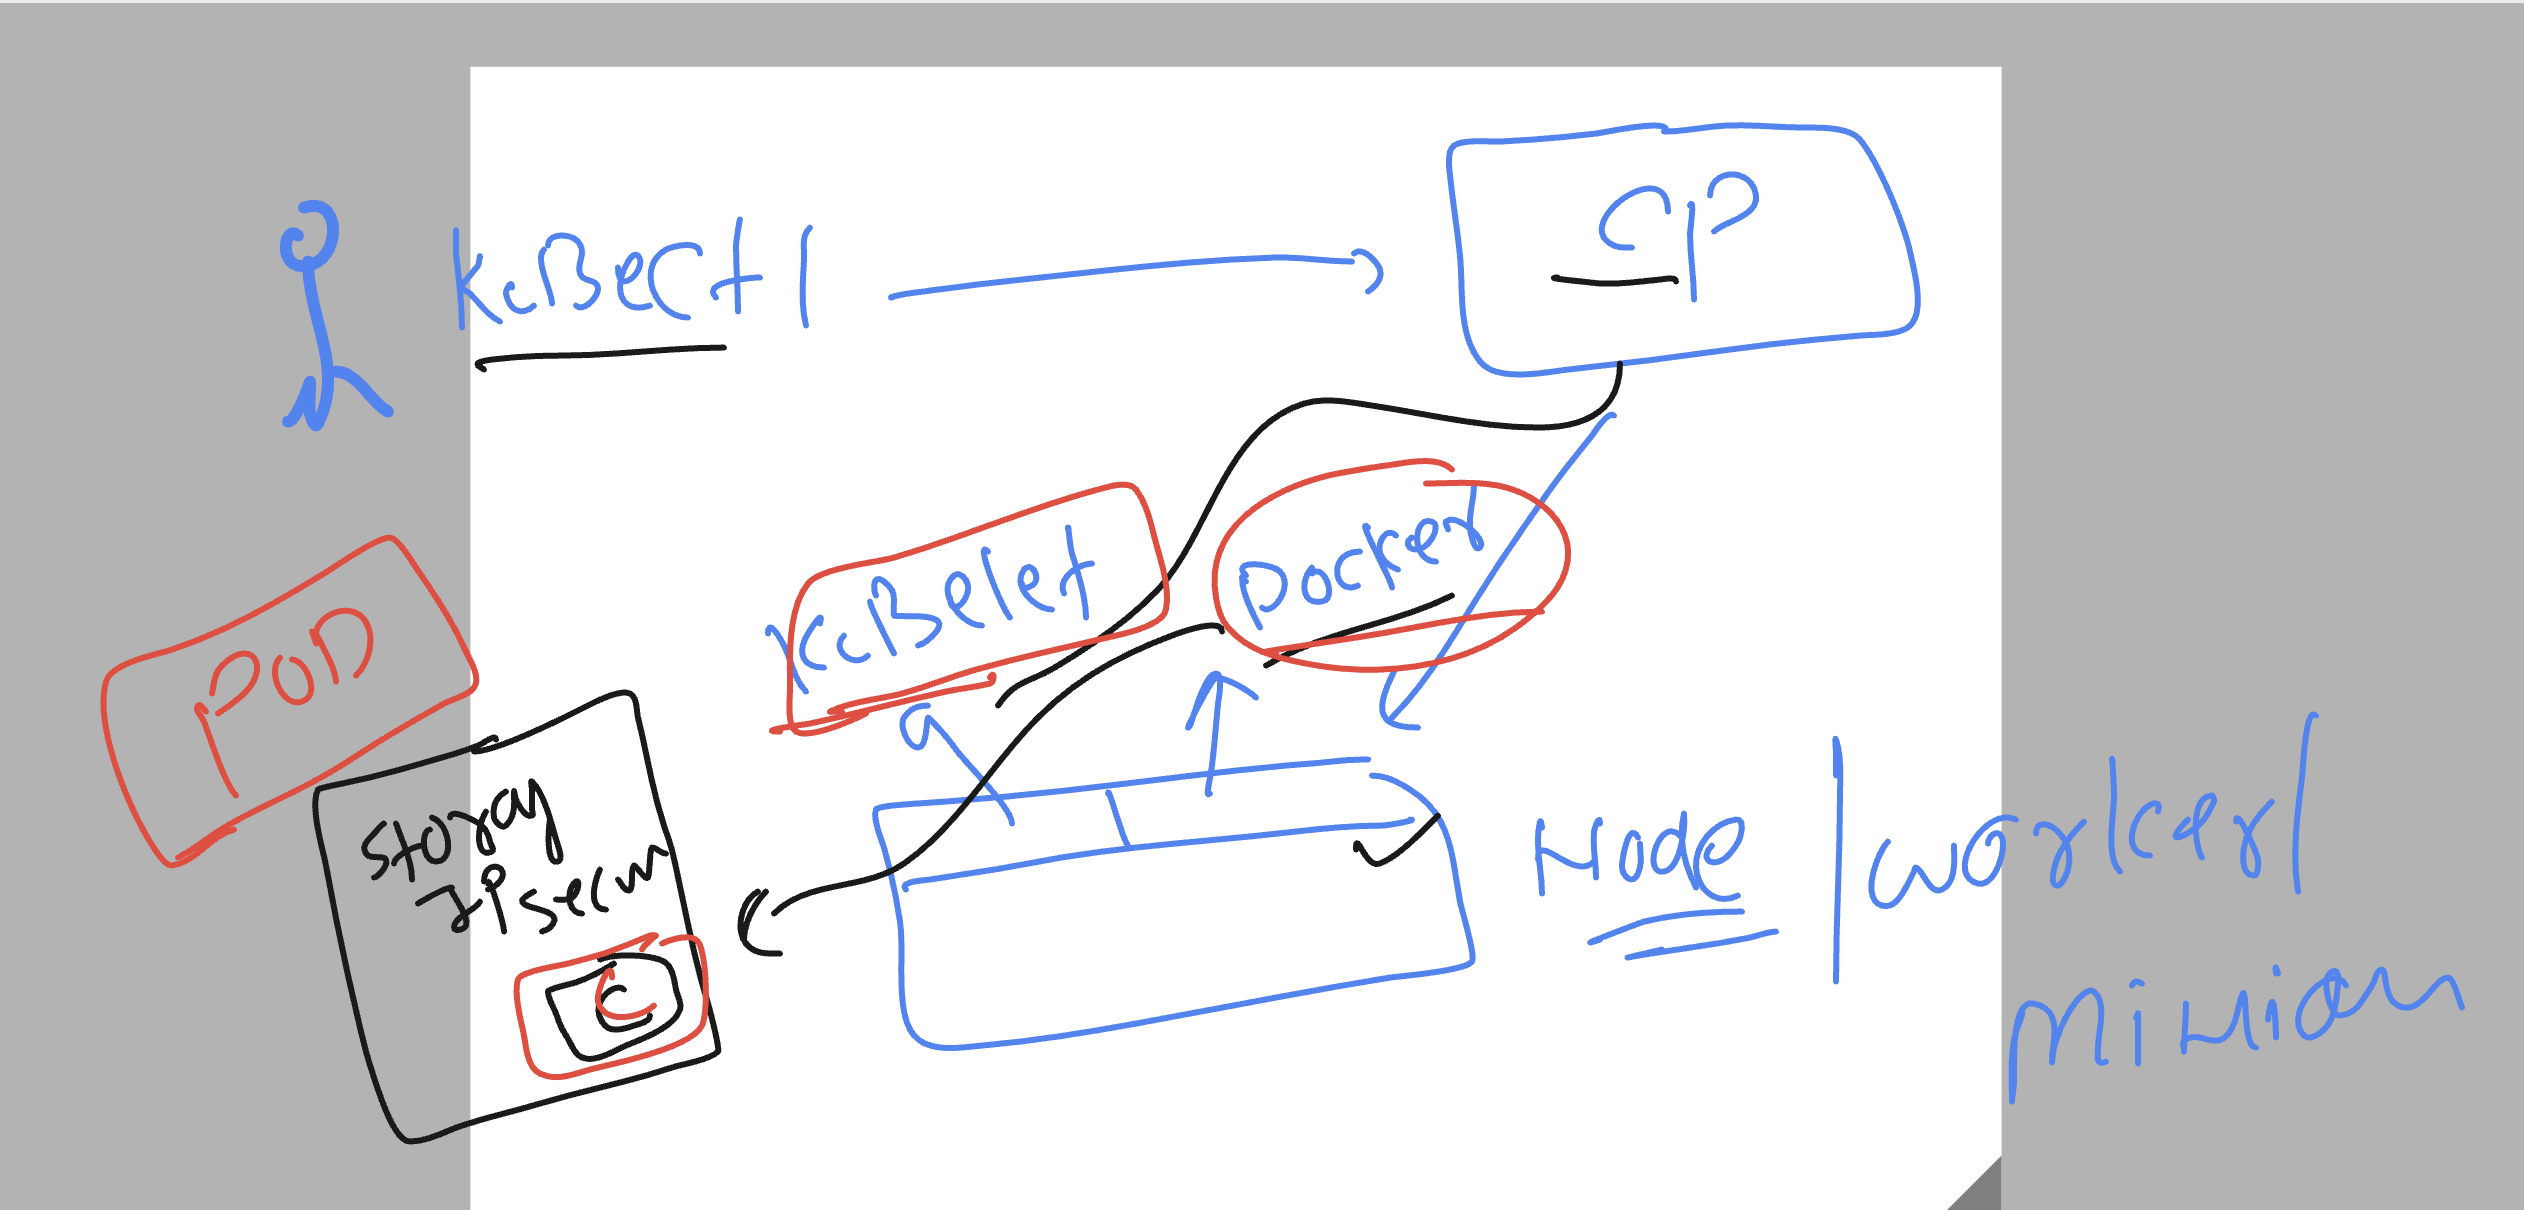 KuBectl
CP
KuBelet
Docker
POD
Storag
IP secu
C
Node | worker |
Minion